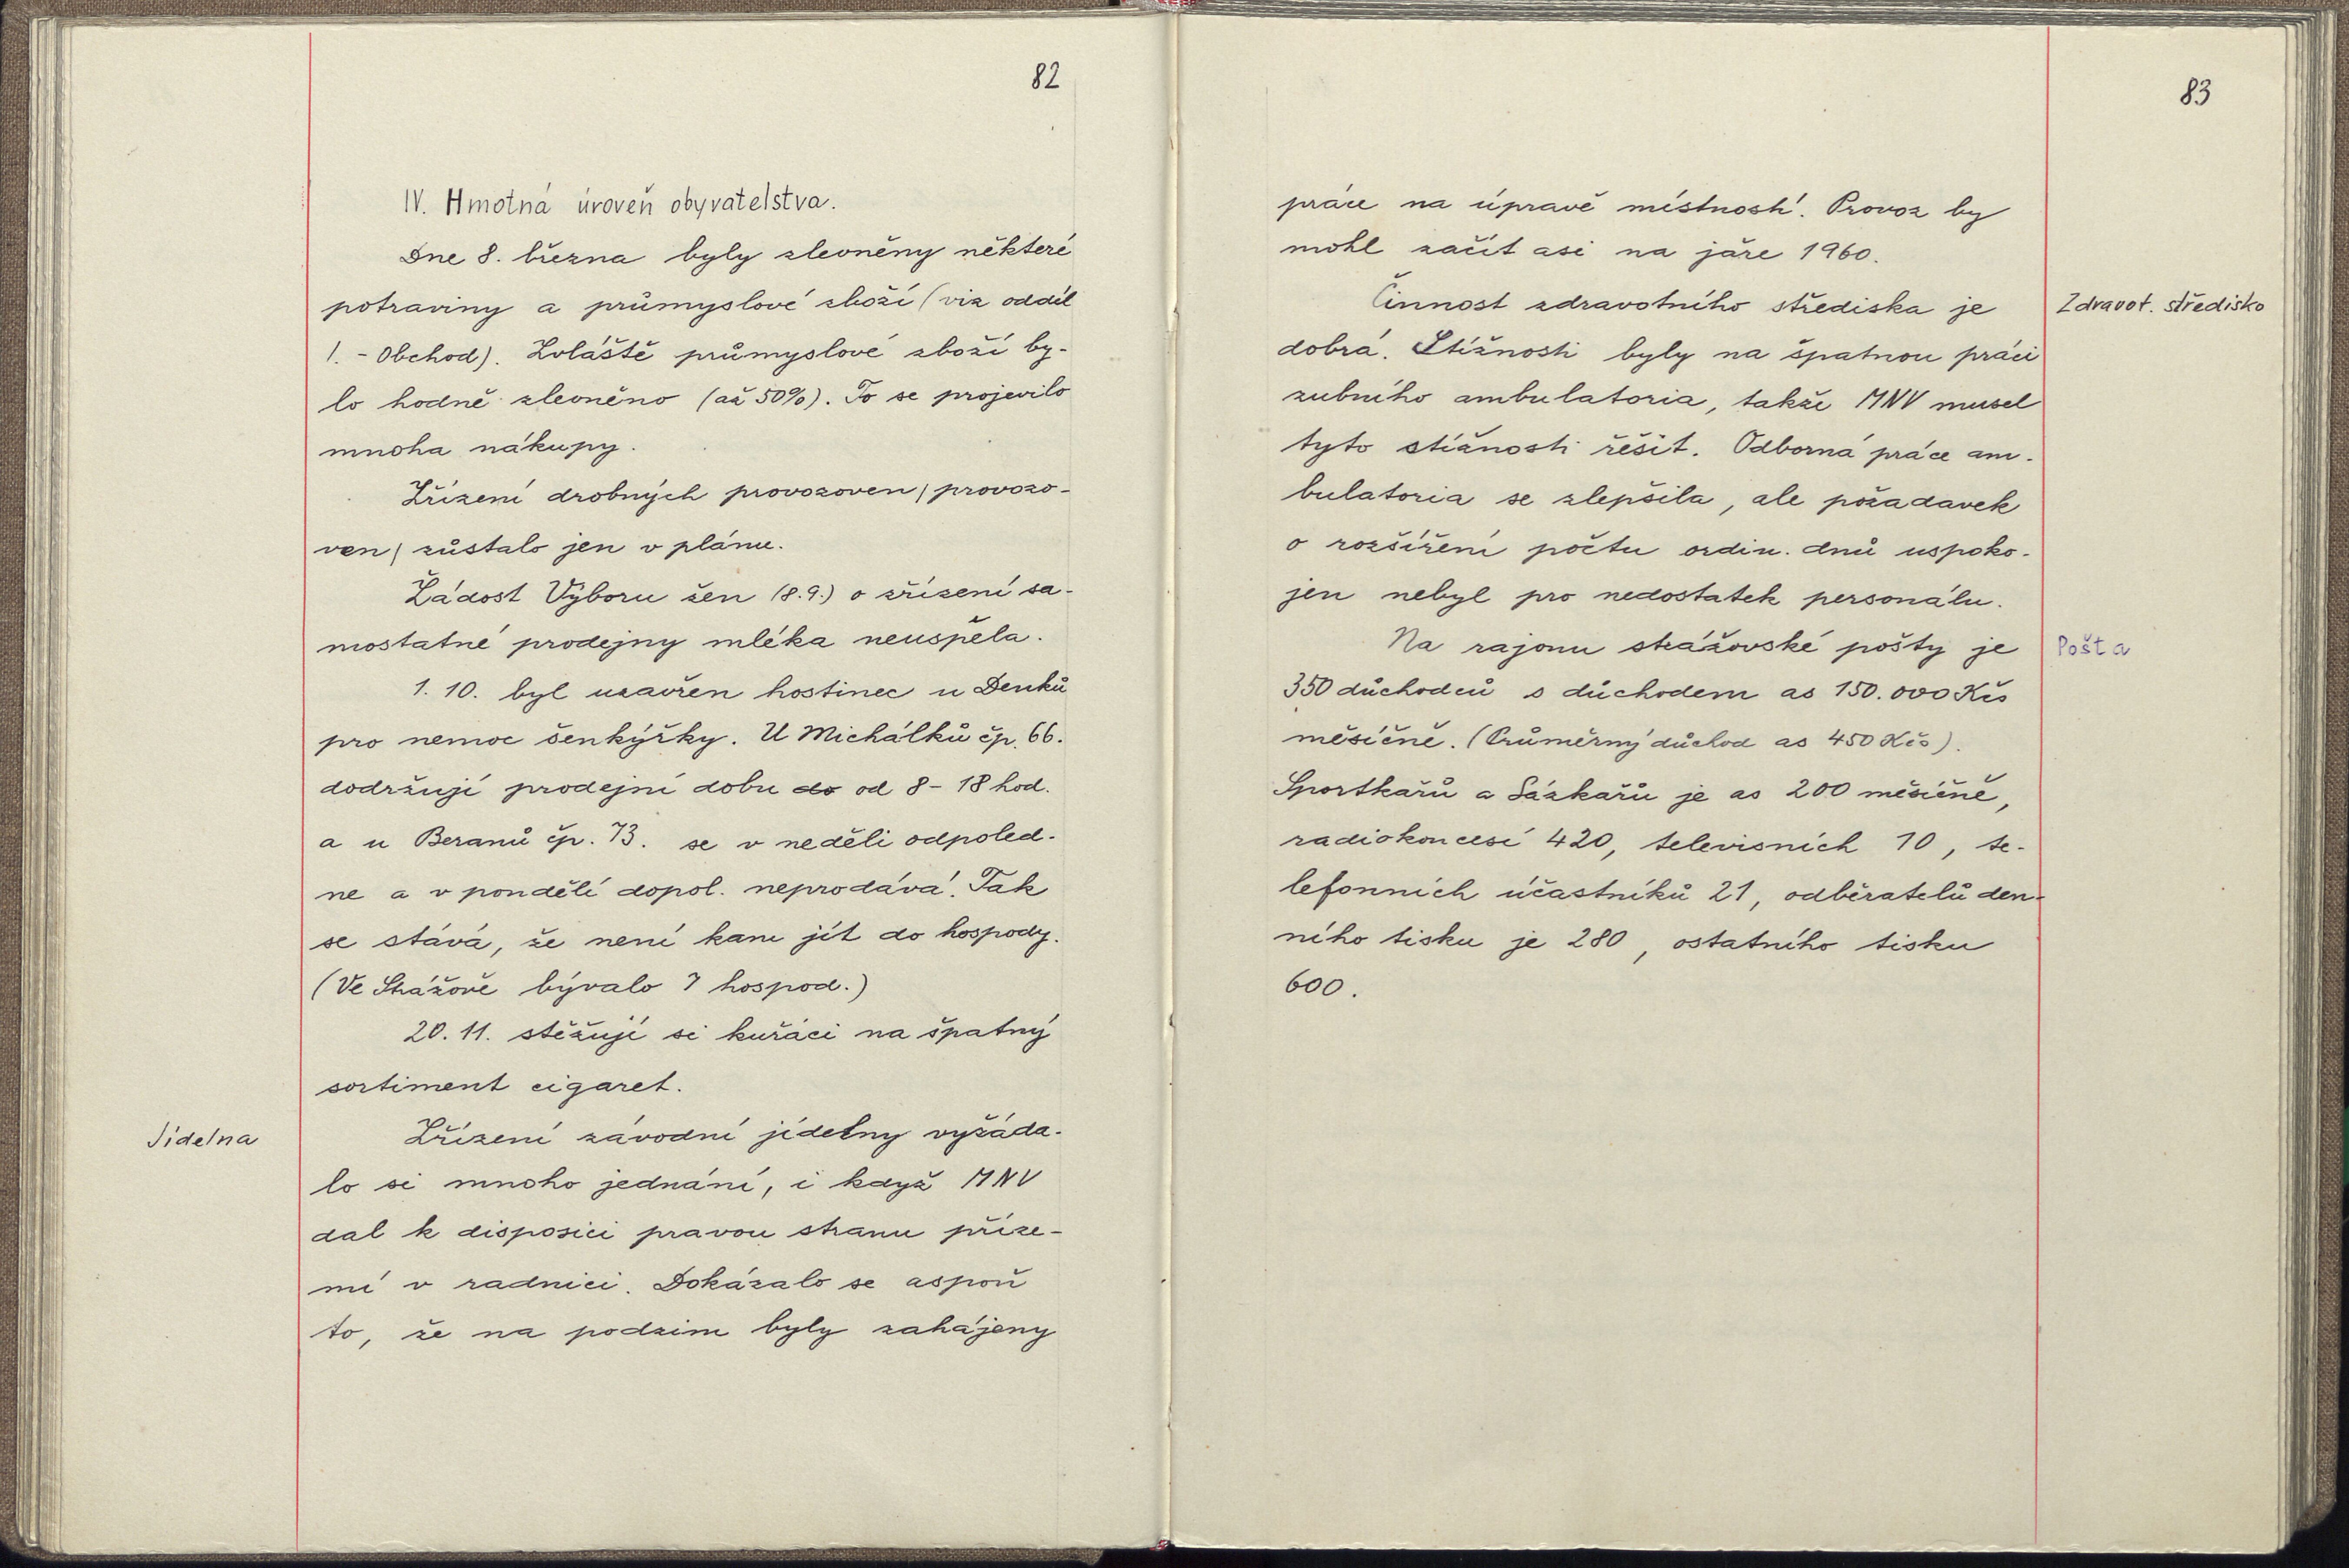 82
IV. Hmotná úroveň obyvatelstva.
Dne 8. března byly zlevněny některé
potraviny a průmyslové zboží (viz oddíl
1. - Obchod). Zvláště průmyslové zboží by-
lo hodně zlevněno (až 50%). To se projevilo
mnoha nákupy.
Zřízení drobných provozoven / provozo-
ven / zůstalo jen v plánu.
Žádost Výboru žen (8.9.) o zřízení sa-
mostatné prodejny mléka neuspěla.
1. 10. byl uzavřen hostinec u Denků
pro nemoc šenkýřky. U Michálků čp. 66.
dodržují prodejní dobu do od 8 - 18 hod.
a u Beranů čp. 73. se v neděli odpoled-
ne a v pondělí dopol. neprodává. Tak
se stává, že není kam jít do hospody.
(Ve Strážově bývalo 7 hospod.)
20. 11. stěžují si kuřáci na špatný
sortiment cigaret.
Jídelna
Zřízení závodní jídelny vyžáda-
lo si mnoho jednání, i když MNV
dal k disposici pravou stranu příze-
mí v radnici. Dokázalo se aspoň
to, že na podzim byly zahájeny
83
práce na úpravě místností. Provoz by
mohl začít asi na jaře 1960.
Činnost zdravotního střediska je
Zdravot. středisko
dobrá. Stížnosti byly na špatnou práci
zubního ambulatoria, takže MNV musel
tyto stížnosti řešit. Odborná práce am-
bulatoria se zlepšila, ale požadavek
o rozšíření počtu ordin. dnů uspoko-
jen nebyl pro nedostatek personálu.
Na rajonu strážovské pošty je
Pošta
350 důchodců s důchodem as 150.000 Kčs
měsíčně. (Průměrný důchod as 450 Kčs).
Sportkařů a Sázkařů je as 200 měsíčně,
radiokoncesí 420, televisních 10, te-
lefonních účastníků 21, odběratelů den-
ního tisku je 280, ostatního tisku
600.